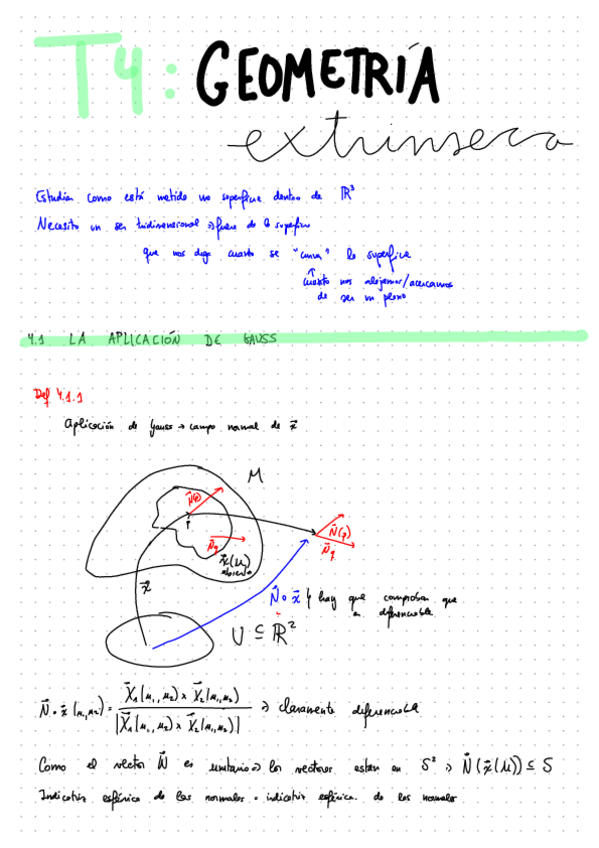 T4: GEOMETRÍA
extrínseca
Estudia como está metida una superficie dentro de ℝ³
Necesito un ser tridimensional → fuera de la superficie
que nos diga cuanto se "curva" la superficie
↑
cuanto nos alejamos/acercamos
de ser un plano
4.1 LA APLICACIÓN DE GAUSS
Def 4.1.1
Aplicación de Gauss → campo normal de x⃗
M
N⃗(p)
p
N⃗q
x⃗(U)
abierto
N⃗(p)
N⃗q
x⃗
N⃗∘x⃗ hay que comprobar que
es diferenciable
U ⊆ ℝ²
N⃗∘x⃗(u₁,u₂) = X⃗₁(u₁,u₂) × X⃗₂(u₁,u₂) / |X⃗₁(u₁,u₂) × X⃗₂(u₁,u₂)| ⇒ claramente diferenciable
Como el vector N⃗ es unitario ⇒ los vectores estan en S² ⇒ N⃗(x⃗(U)) ⊆ S
Indicatriz esférica de las normales = indicatriz esférica de las normales